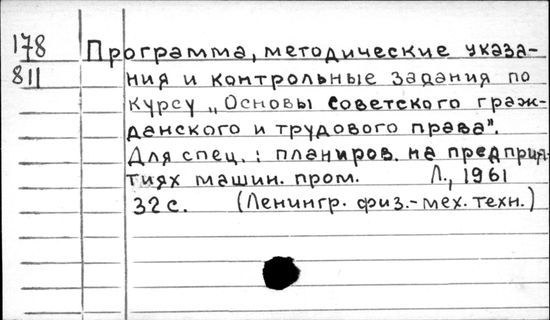 178 Программа, методические указа-
811 ния и контрольные задания по
курсу „Основы советского граж-
данского и трудового права".
Для спец.: планиров. на предприя-
тиях машин. пром. Л., 1961
32 с. (Ленингр. физ.-мех. техн.)